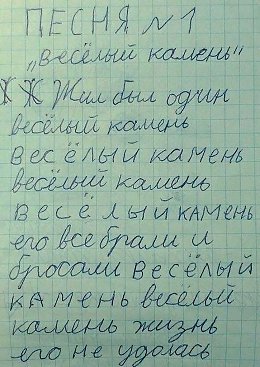 ПЕСНЯ №1
„весёлый камень"
Ж Ж Жил был один
весёлый камень
весёлый камень
весёлый камень
весёлый камень
его все брали и
бросали весёлый
камень весёлый
камень жизнь
его не удолась